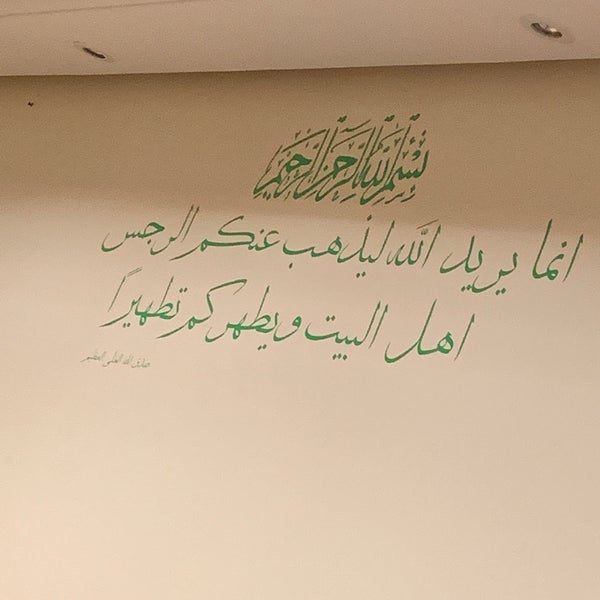 بسم الله الرحمن الرحيم
انما يريد الله ليذهب عنكم الرجس
اهل البيت ويطهركم تطهيراً
صدق الله العلي العظيم